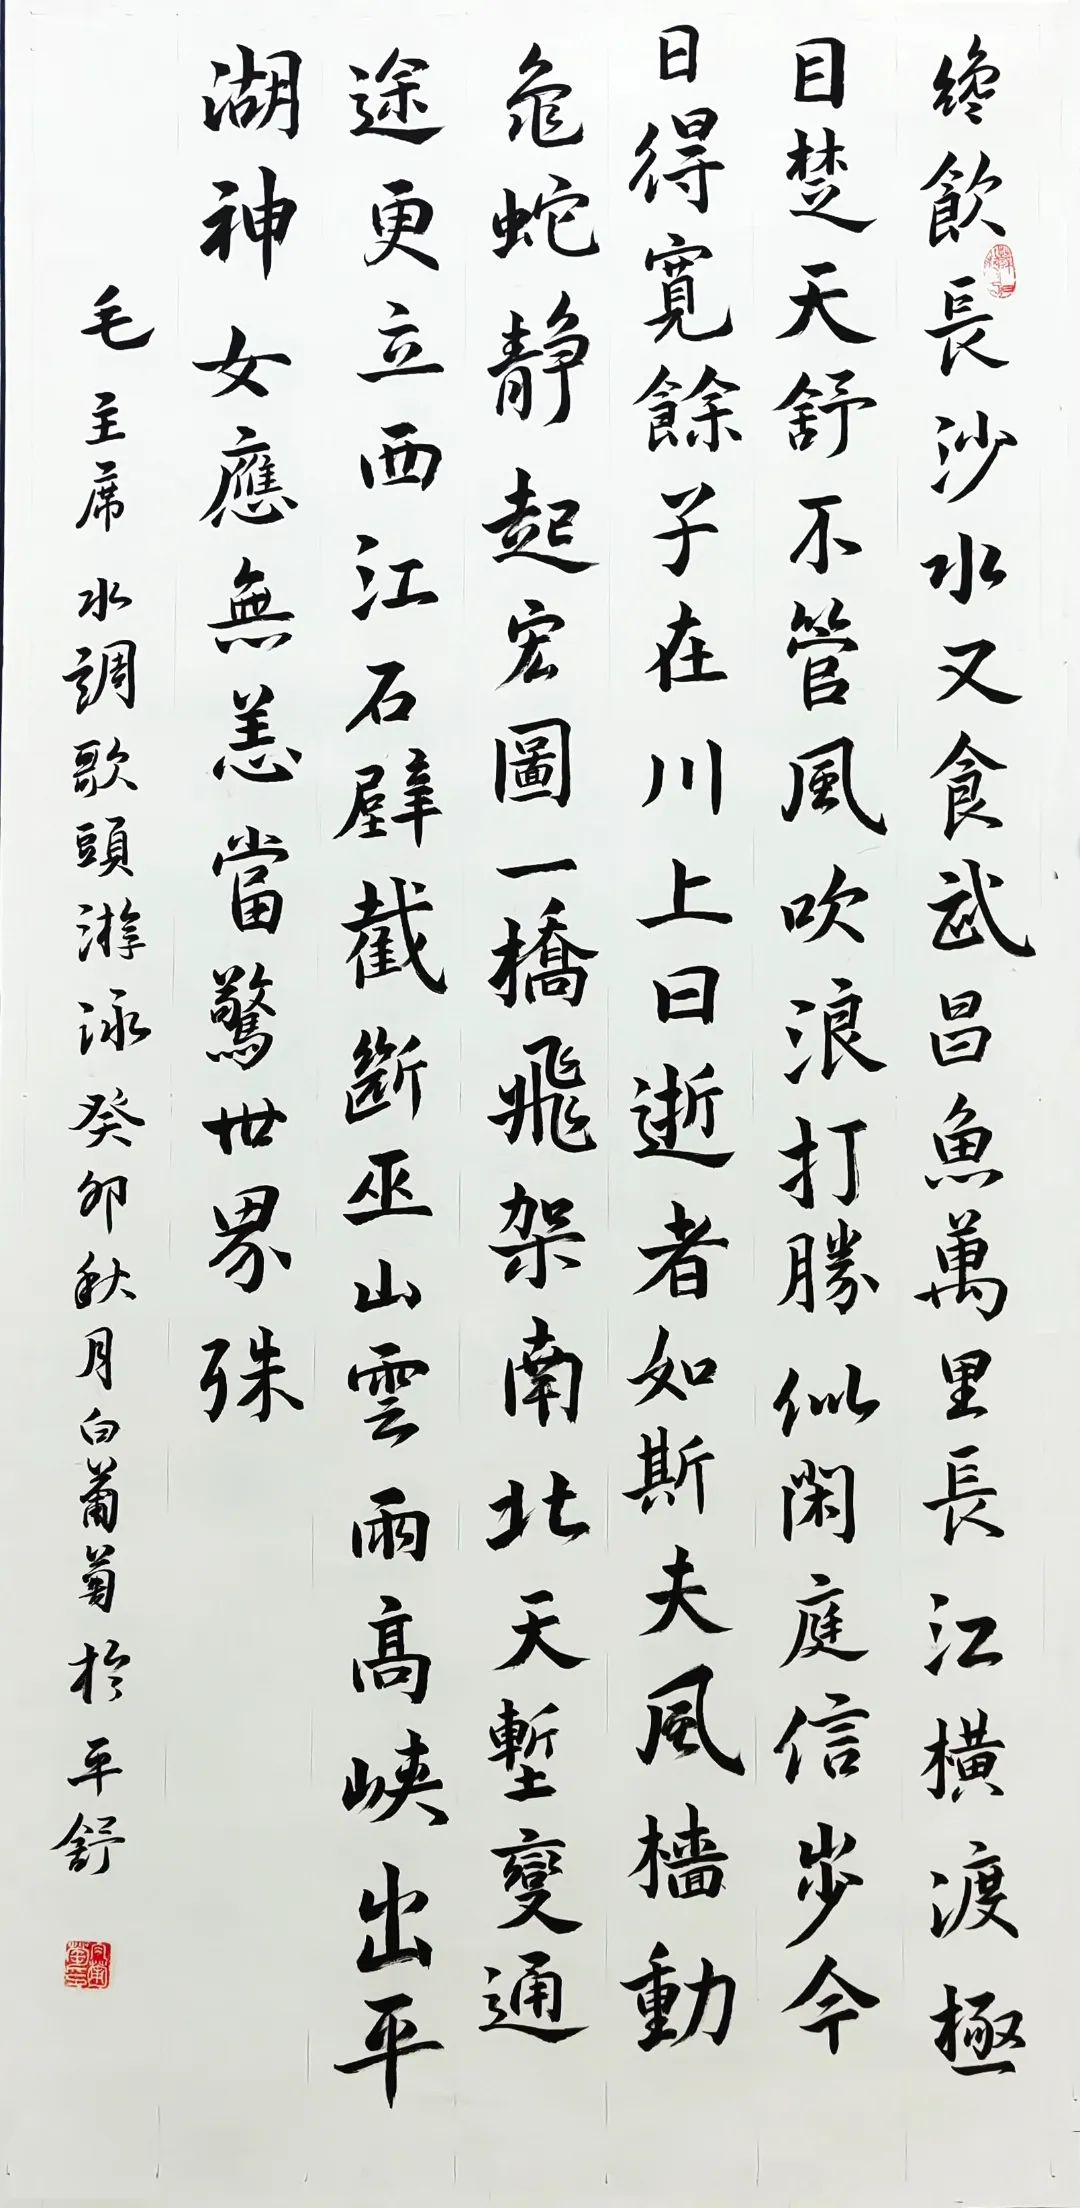 纔飲長沙水又食武昌魚萬里長江橫渡極
目楚天舒不管風吹浪打勝似閑庭信步今
日得寬餘子在川上曰逝者如斯夫風檣動
龜蛇靜起宏圖一橋飛架南北天塹變通
途更立西江石壁截斷巫山雲雨高峽出平
湖神女應無恙當驚世界殊
毛主席 水調歌頭游泳癸卯秋月白菊於平舒